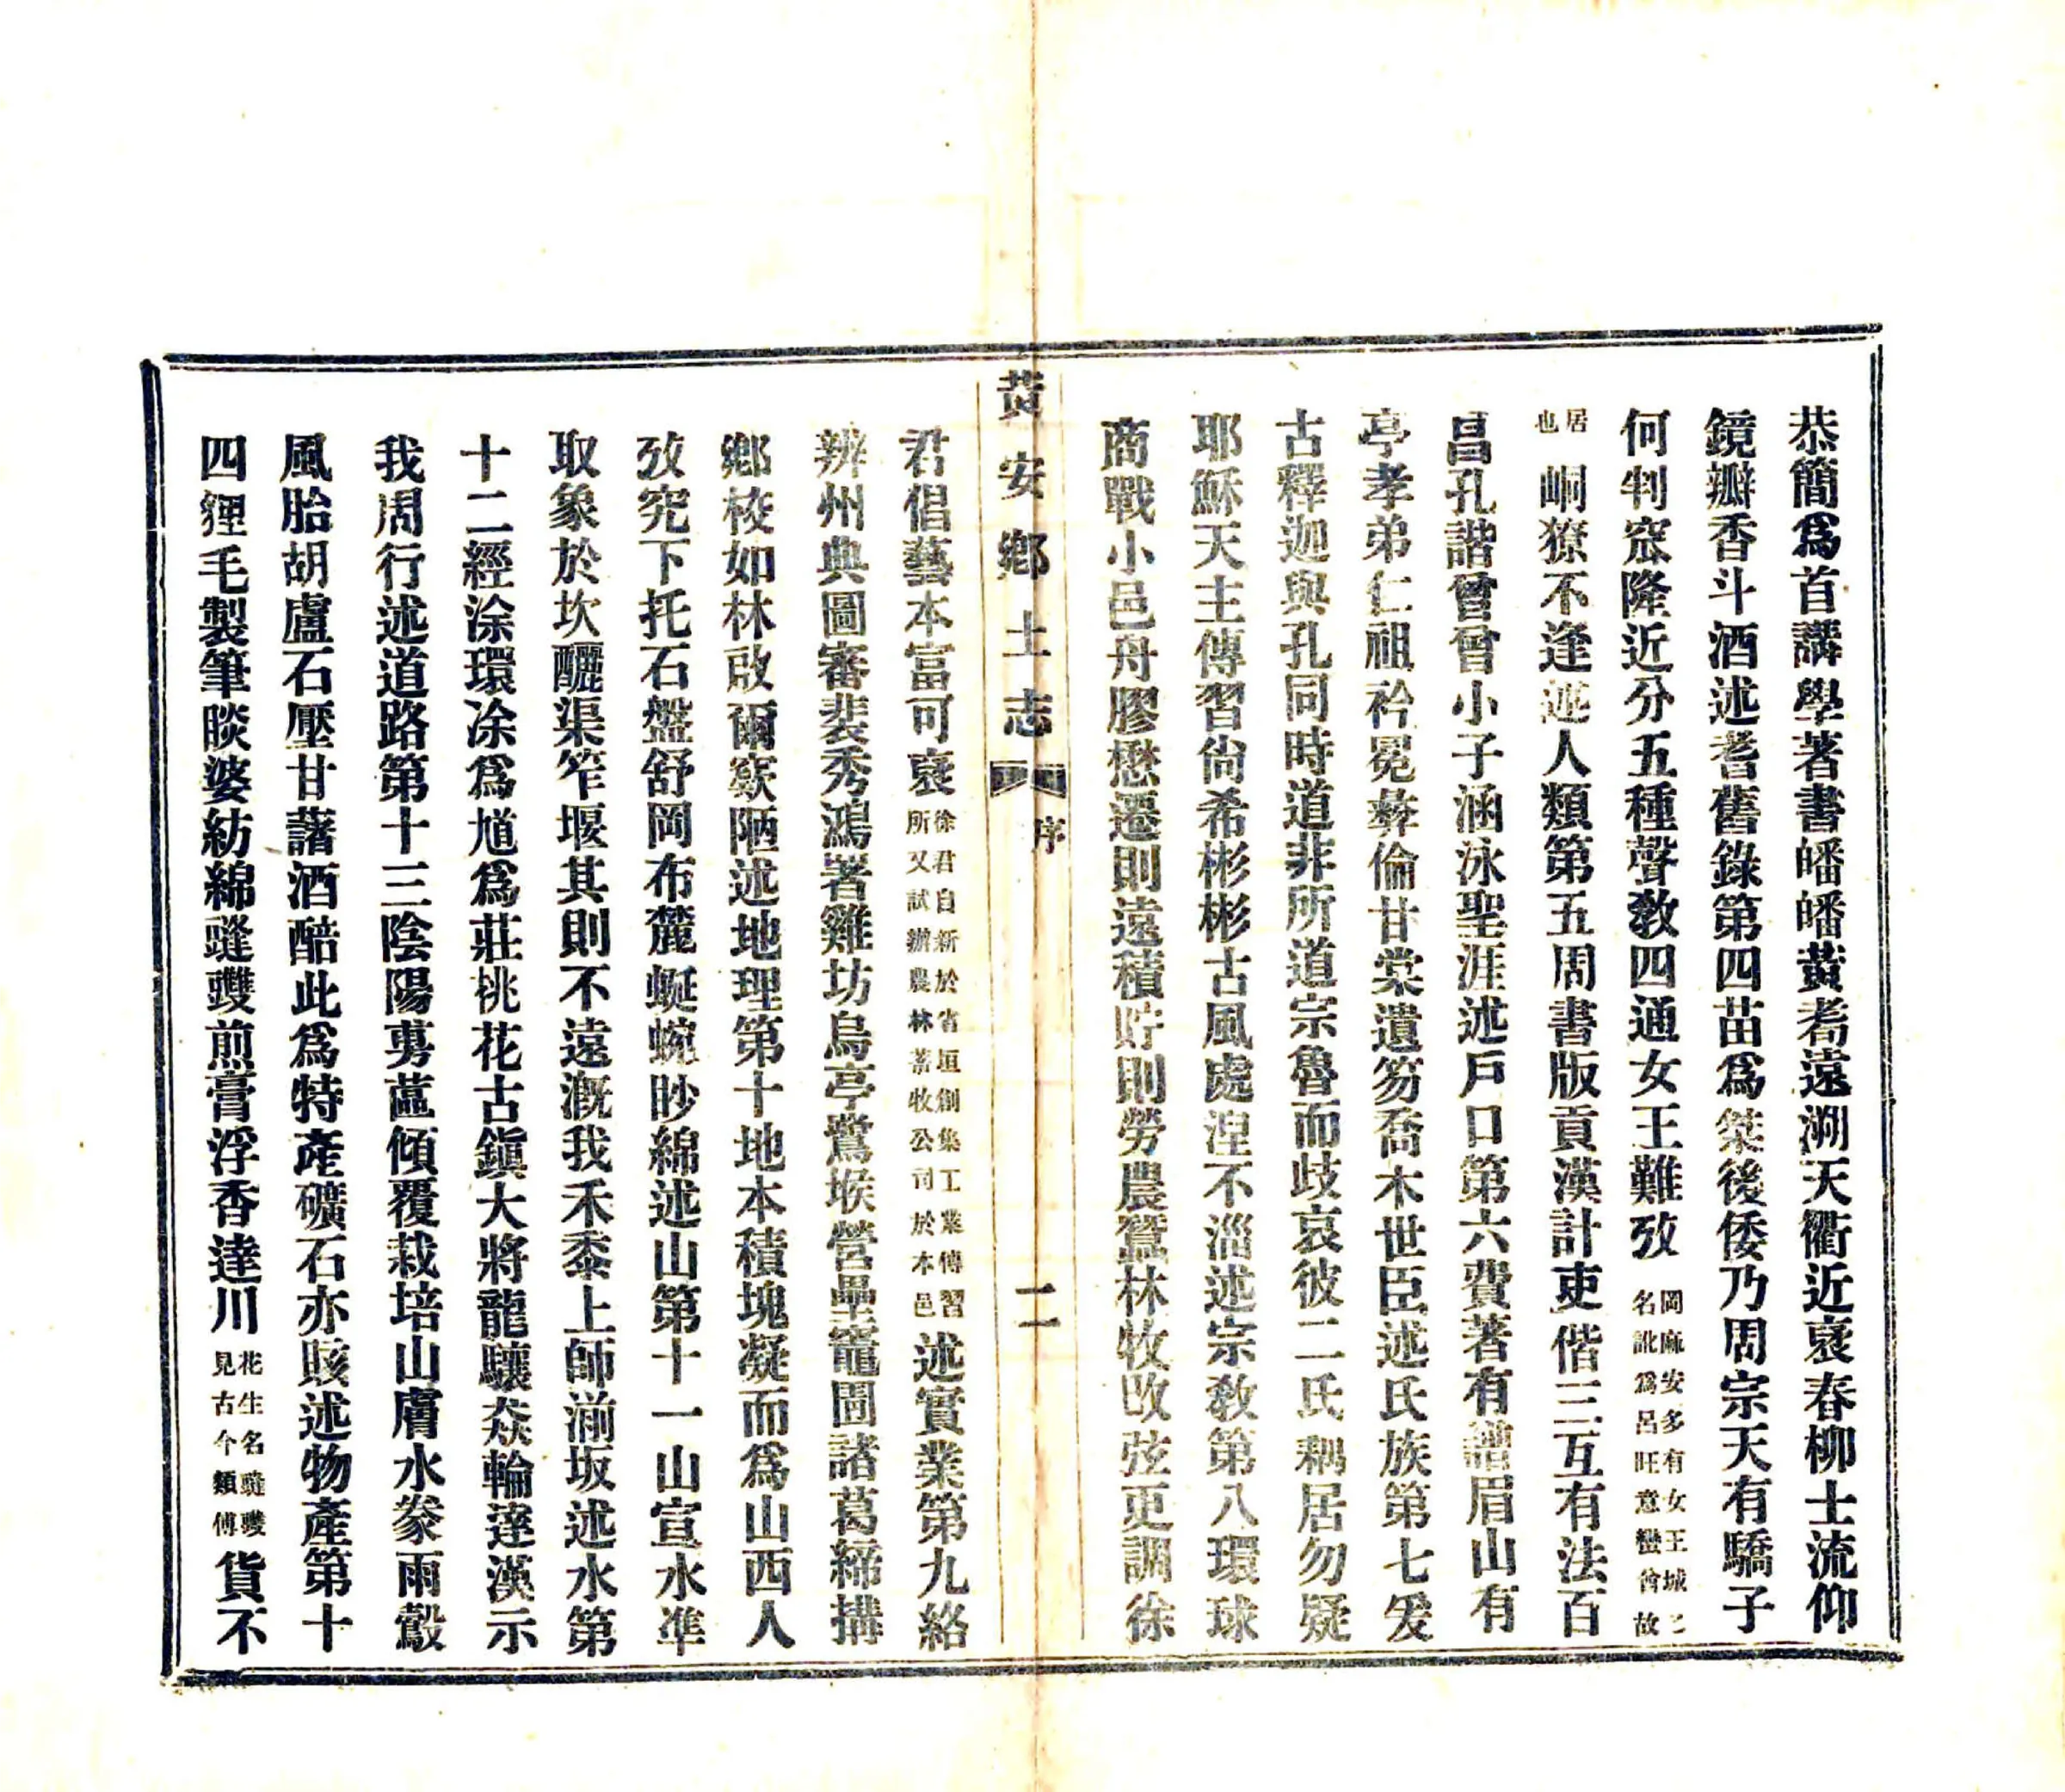 恭簡爲首講學著書皤皤黃耈遠溯天衢近裒春柳士流仰
鏡瓣香斗酒述耆舊錄第四苗爲桀後倭乃周宗天有驕子
何判窊隆近分五種聲敎四通女王難攷岡麻安多有女王城
名訛爲呂旺意蠻酋故
居
也峒獠不逢述人類第五周書版貢漢計吏偕三互有法百
昌孔諧曾曾小子涵泳聖涯述戶口第六費著有譜眉山有
亭孝弟仁祖衿冕彜倫甘棠遺笏喬木世臣述氏族第七爰
古釋迦與孔同時道非所道宗魯而歧哀彼二氏耦居勿疑
耶穌天主傳習尙希彬彬古風處涅不淄述宗敎第八環球
商戰小邑舟膠懋遷則遠積貯則勞農蠶林牧改弦更調徐
黃安鄕土志 序 二
君倡藝本富可裒徐君自新於省垣創集工業傅習
所又試辦農林蓄牧公司於本邑述實業第九絡
辨州典圖審裴秀鴻署雞坊烏亭鷺堠營壘竈圄諸葛締搆
鄕校如林啟爾窾陋述地理第十地本積塊凝而爲山西人
攷究下托石盤舒岡布麓蜒蜿眇綿述山第十一山宣水凖
取象於坎釃渠筰堰其則不遠漑我禾黍上師湔坂述水第
十二經涂環涂爲馗爲莊桃花古鎭大將龍驤猋輪達漢示
我周行述道路第十三陰陽旉蓲傾覆栽培山膚水豢雨鷇
風胎胡盧石壓甘藷酒酷此爲特產礦石亦賅述物產第十
四貍毛製筆睒婆紡綿䜶䝄煎膏浮香達川花生名䜶䝄
見古今類傅貨不